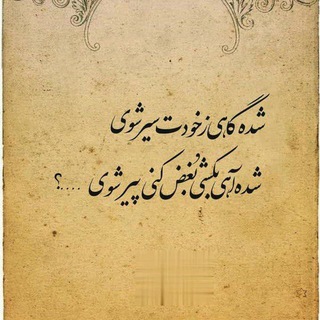 شده گاهی ز خودت سیر شوی
شده آهی بکشی و بغض کنی پیر شوی ....؟